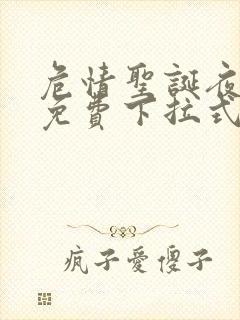 危情聖誕夜
免費下拉式
疯子愛傻子